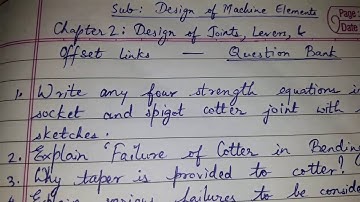 Sub: Design of Machine Elements
Page
Date
Chapter 2: Design of Joints, Levers, &
Offset Links — Question Bank
1. Write any four strength equations in
socket and spigot cotter joint with
sketches.
2. Explain 'Failure of Cotter in Bendin
3. Why taper is provided to cotter?
4. Explain various failures to be consid